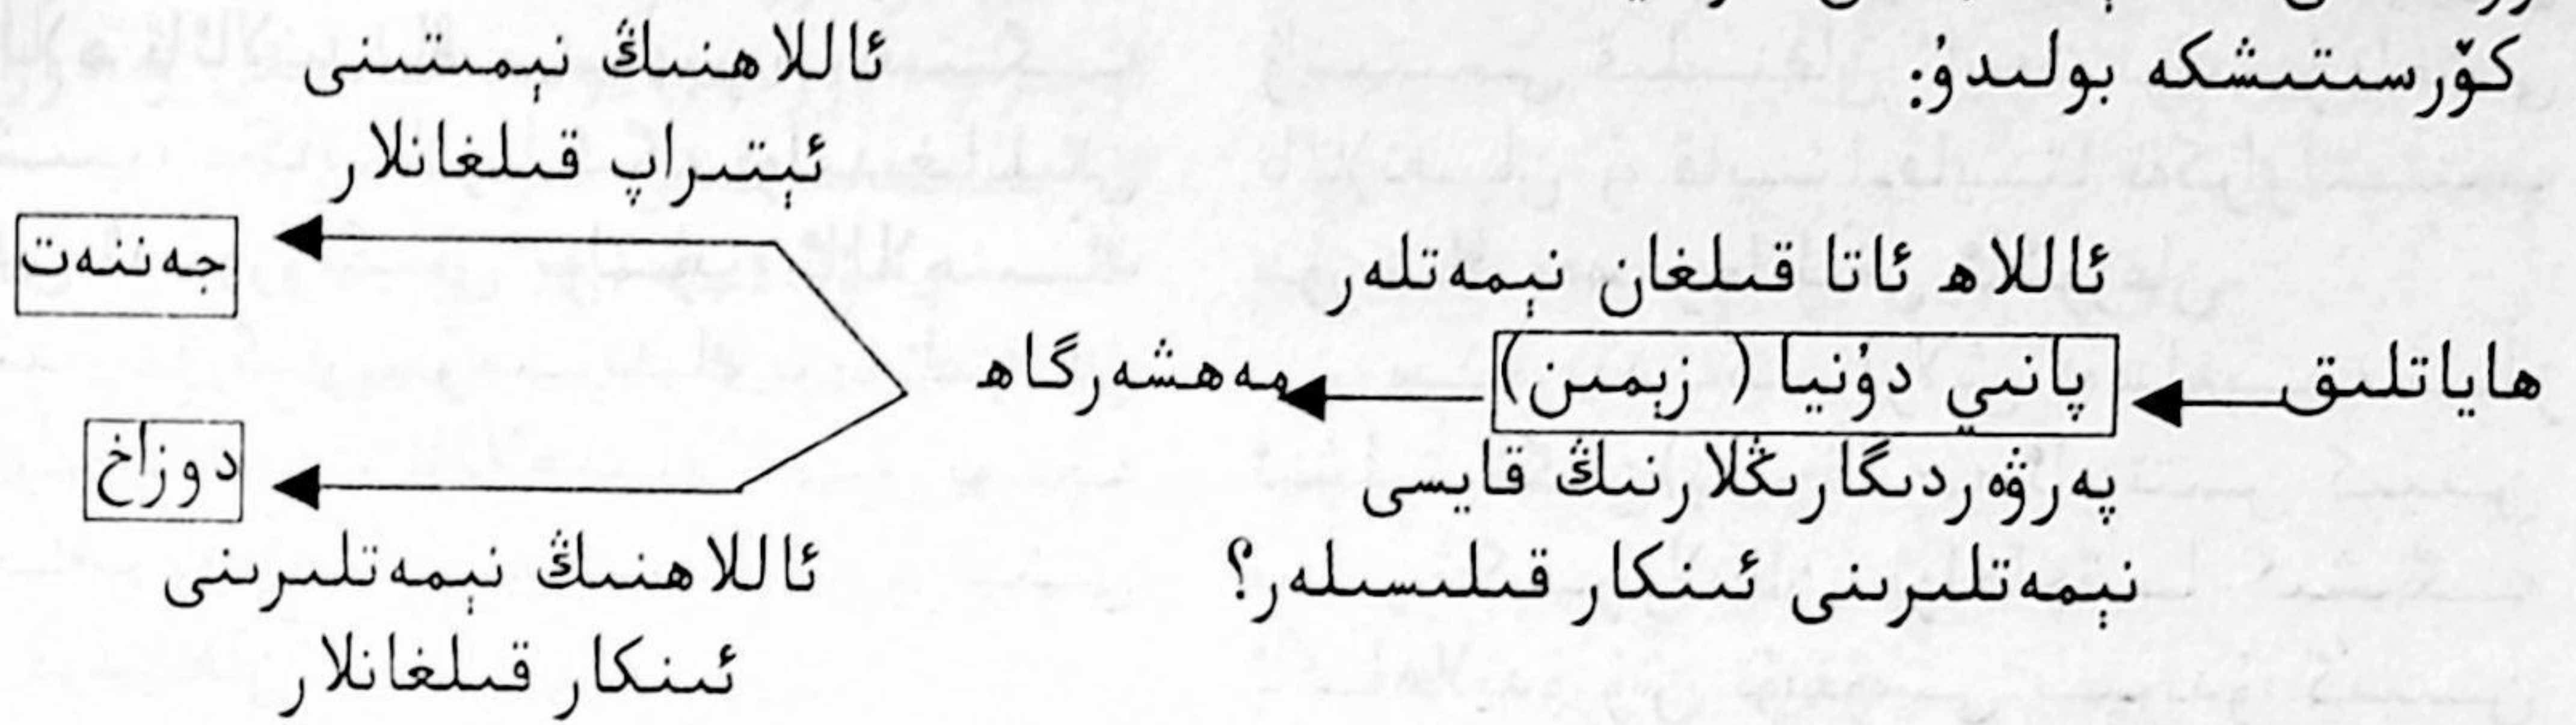 كۆرسىتىشكە بولىدۇ:
ئاللاھ ئاتا قىلغان نېمەتلەر
ھاياتلىق
پانىي دۇنيا (زېمىن)
پەرۋەردىگارىڭلارنىڭ قايسى
نېمەتلىرىنى ئىنكار قىلىسىلەر؟
مەھشەرگاھ
ئاللاھنىڭ نېمىتىنى
ئېتىراپ قىلغانلار
جەننەت
دوزاخ
ئاللاھنىڭ نېمەتلىرىنى
ئىنكار قىلغانلار